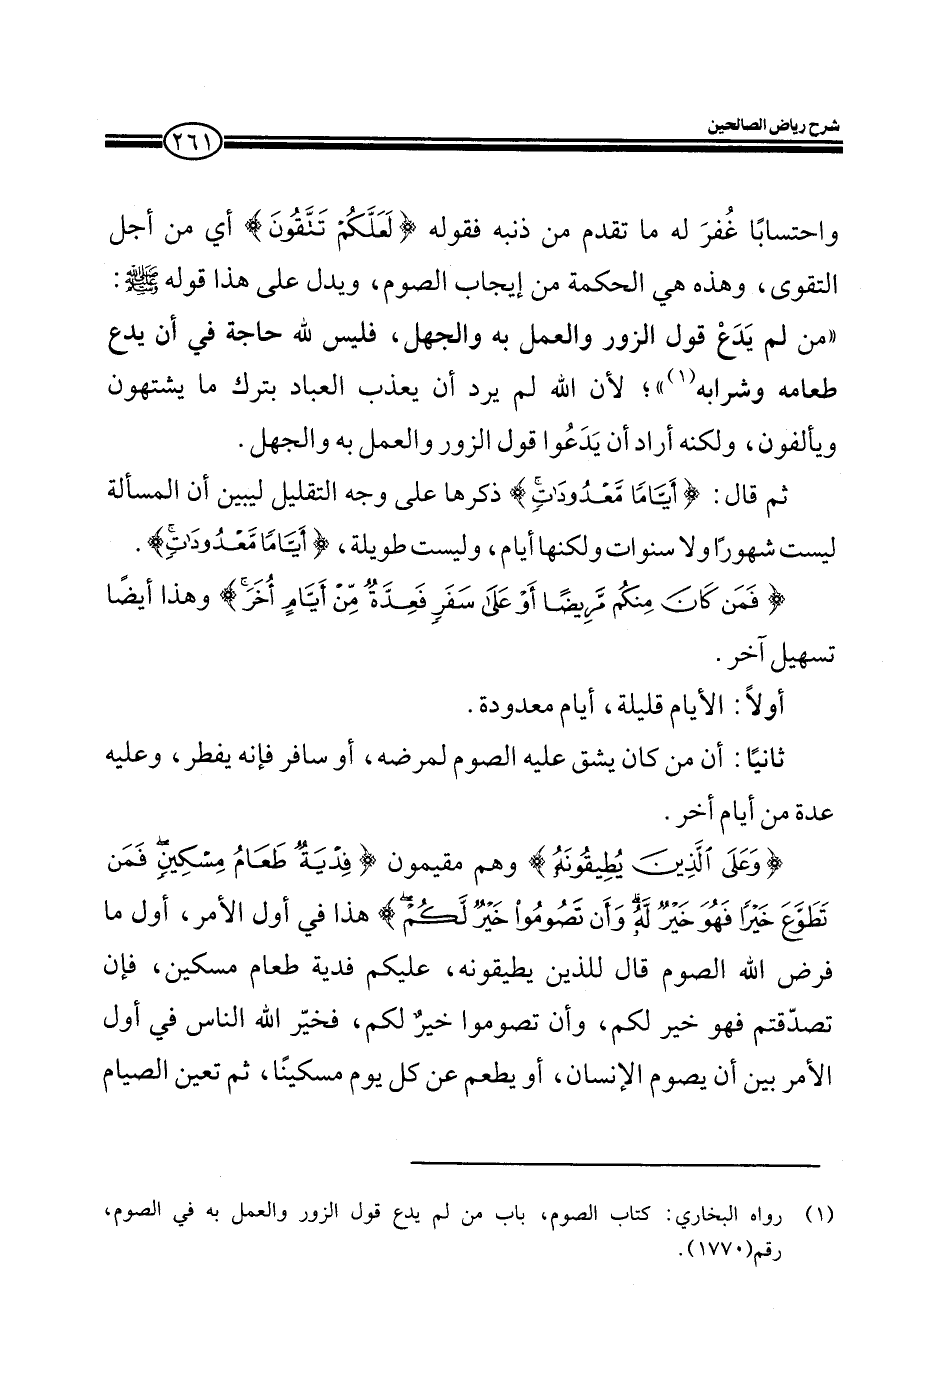 شرح رياض الصالحين
٢٦١
واحتسابًا غُفرَ له ما تقدم من ذنبه فقوله ﴿لَعَلَّكُمْ تَتَّقُونَ﴾ أي من أجل
التقوى، وهذه هي الحكمة من إيجاب الصوم، ويدل على هذا قوله ﷺ:
«من لم يَدَعْ قول الزور والعمل به والجهل، فليس لله حاجة في أن يدع
طعامه وشرابه(١)»؛ لأن الله لم يرد أن يعذب العباد بترك ما يشتهون
ويألفون، ولكنه أراد أن يَدَعُوا قول الزور والعمل به والجهل.
ثم قال: ﴿أَيَّامًا مَّعْدُودَٰتٍۚ﴾ ذكرها على وجه التقليل ليبين أن المسألة
ليست شهورًا ولا سنوات ولكنها أيام، وليست طويلة، ﴿أَيَّامًا مَّعْدُودَٰتٍۚ﴾.
﴿فَمَن كَانَ مِنكُم مَّرِيضًا أَوْ عَلَىٰ سَفَرٍ فَعِدَّةٌ مِّنْ أَيَّامٍ أُخَرَۚ﴾ وهذا أيضًا
تسهيل آخر.
أولاً: الأيام قليلة، أيام معدودة.
ثانيًا: أن من كان يشق عليه الصوم لمرضه، أو سافر فإنه يفطر، وعليه
عدة من أيام أخر.
﴿وَعَلَى ٱلَّذِينَ يُطِيقُونَهُۥ﴾ وهم مقيمون ﴿فِدْيَةٌ طَعَامُ مِسْكِينٍۖ فَمَن
تَطَوَّعَ خَيْرًا فَهُوَ خَيْرٌ لَّهُۥۚ وَأَن تَصُومُوا۟ خَيْرٌ لَّكُمْۖ﴾ هذا في أول الأمر، أول ما
فرض الله الصوم قال للذين يطيقونه، عليكم فدية طعام مسكين، فإن
تصدّقتم فهو خير لكم، وأن تصوموا خيرٌ لكم، فخيّر الله الناس في أول
الأمر بين أن يصوم الإنسان، أو يطعم عن كل يوم مسكينًا، ثم تعين الصيام
(١) رواه البخاري: كتاب الصوم، باب من لم يدع قول الزور والعمل به في الصوم،
رقم(١٧٧٠).